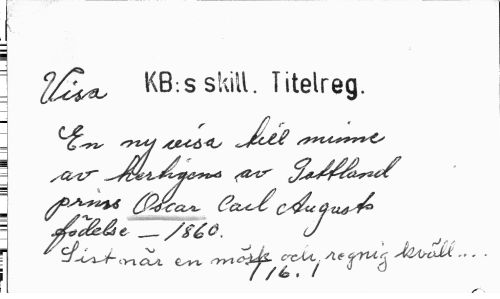 Visa KB:s skill. Titelreg.
En ny visa till minne
av hertigens av Gottland
prins Oscar Carl Augusts
födelse – 1860.
Sist när en mörk och regnig kväll....
1/16.1